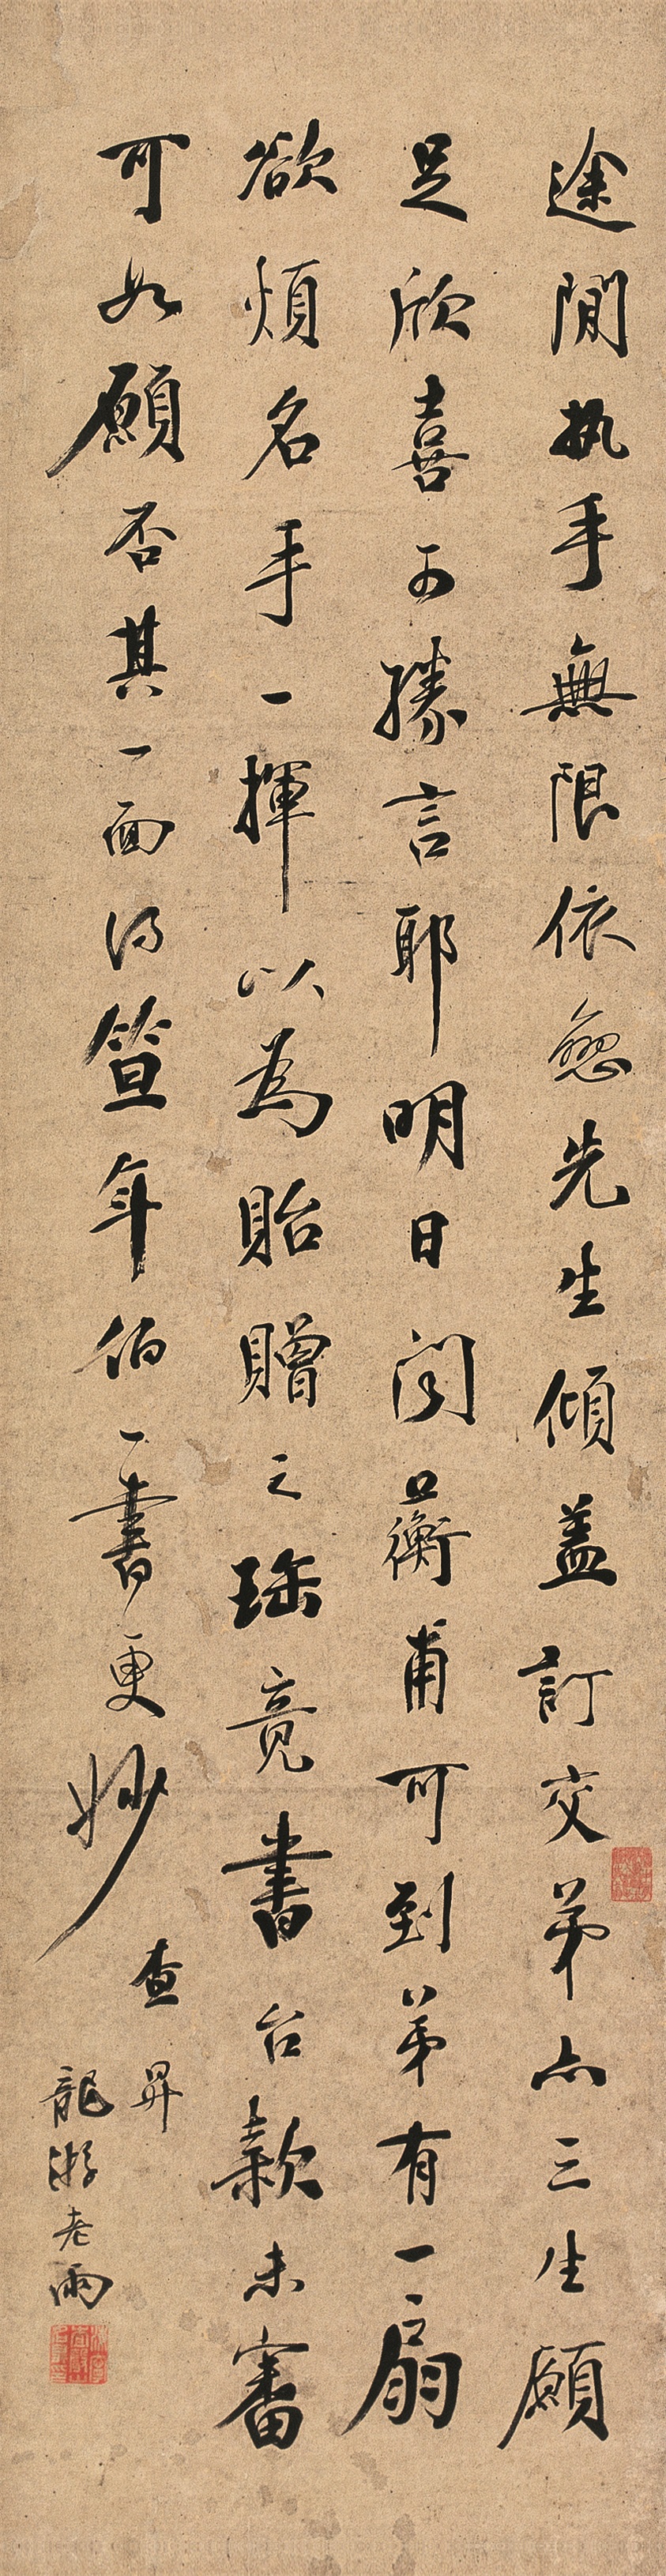 途間執手無限依戀先生傾蓋訂交弟亦三生願
足欣喜可勝言耶明日聞蘅甫可到弟有一扇
欲煩名手一揮以為貽贈之珎竟書台款未審
可如願否其一面得笪年伯一書更妙
查昇
龍游老雨